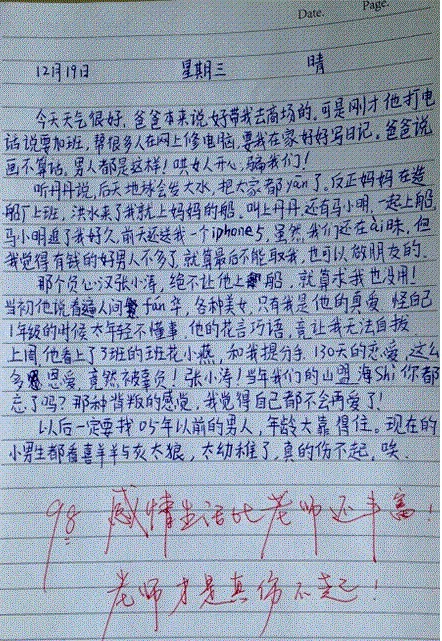 Date. Page.
12月19日 星期三 晴
今天天气很好,爸爸本来说好带我去商场的,可是刚才他打电
话说要加班,帮很多人在网上修电脑,要我在家好好写日记。爸爸说
画不算话,男人都是这样!哄女人开心,骗我们!
听丹丹说,后天地球会发大水,把大家都yān了。反正妈妈在造
船厂上班,洪水来了我就上妈妈的船。叫上丹丹,还有马小明,一起上船,
马小明追了我好久,前天还送我一个iphone5,虽然我们还在ài昧,但
我觉得有钱的好男人不多了,就算最后不能取我,也可以做朋友的。
那个负心汉张小涛,绝不让他上船,就算求我也没用!
当初他说看遍人间fán华,各种美女,只有我是他的真爱,怪自己
1年级的时候太年轻不懂事,他的花言巧语,竟让我无法自拔
上周他看上了3班的班花小燕,和我提分手,130天的恋爱,这么
多恩爱,竟然被辜负!张小涛!当年我们的山盟海Shi你都
忘了吗?那种背叛的感觉,我觉得自己都不会再爱了!
以后一定要找05年以前的男人,年龄大靠得住。现在的
小男生都看喜羊羊与灰太狼,太幼稚了,真的伤不起,唉.
98 感情生活比老师还丰富!
老师才是真伤不起!